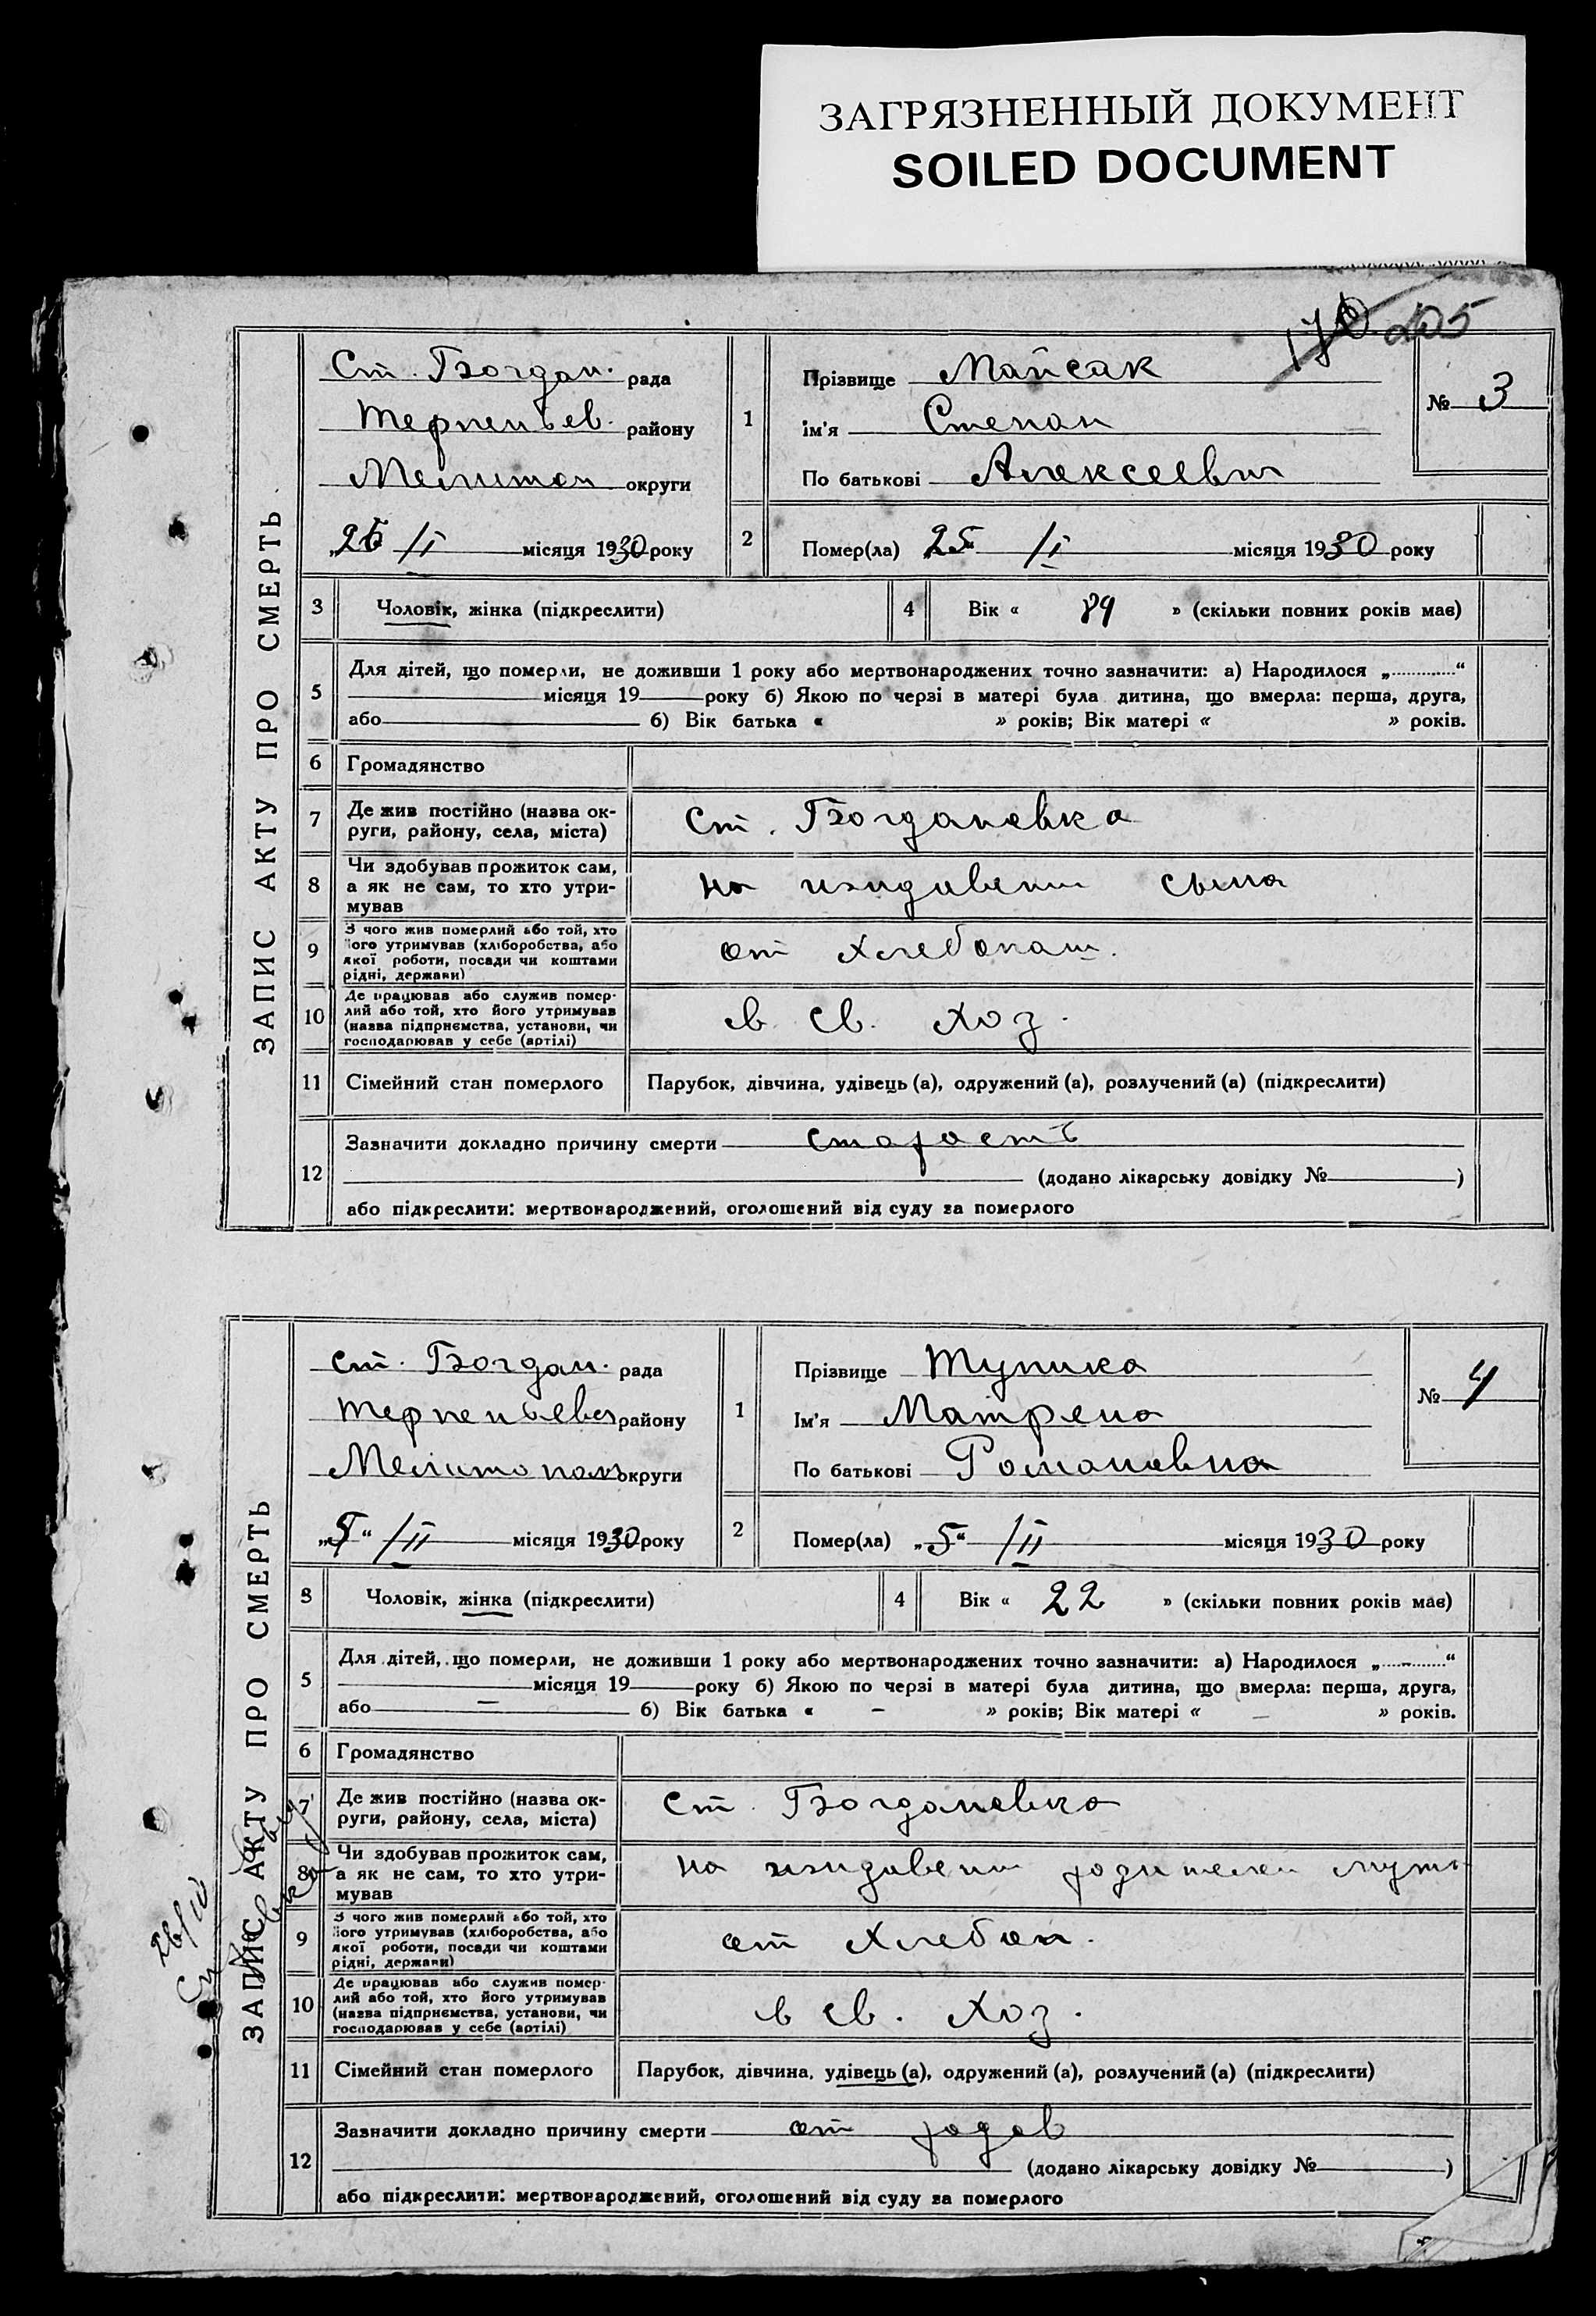 ЗАГРЯЗНЕННЫЙ ДОКУМЕНТ
SOILED DOCUMENT
170 205
ЗАПИС АКТУ ПРО СМЕРТЬ
Ст. Богдан. рада
Терпеньев. району
Мелитоп округи
„26 /I місяця 1930 року
1
Прізвище Майсак
ім'я Степан
По батькові Алексеевич
№ 3
2
Помер(ла) „25“ /I місяця 1930 року
3 Чоловік, жінка (підкреслити)
4 Вік « 89 » (скільки повних років має)
5 Для дітей, що померли, не доживши 1 року або мертвонароджених точно зазначити: а) Народилося „.............“
місяця 19 року б) Якою по черзі в матері була дитина, що вмерла: перша, друга,
або б) Вік батька « » років; Вік матері « » років.
6 Громадянство
7 Де жив постійно (назва ок-
руги, району, села, міста)
Ст. Богдановка
8 Чи здобував прожиток сам,
а як не сам, то хто утри-
мував
на иждивении сына
9 З чого жив померлий або той, хто
його утримував (хліборобства, або
якої роботи, посади чи коштами
рідні, держави)
от хлебопаш.
10 Де працював або служив помер-
лий або той, хто його утримував
(назва підприємства, установи, чи
господарював у себе (артілі)
в св. хоз.
11 Сімейний стан померлого
Парубок, дівчина, удівець (а), одружений (а), розлучений (а) (підкреслити)
12 Зазначити докладно причину смерти старость
(додано лікарську довідку № )
або підкреслити: мертвонароджений, оголошений від суду за померлого
ЗАПИС АКТУ ПРО СМЕРТЬ
Ст. Богдан. рада
Терпеньевск району
Мелитопол округи
„5“ /II місяця 1930 року
1
Прізвище Тупика
Ім'я Матрена
По батькові Романовна
№ 4
2
Помер(ла) „5“ /II місяця 1930 року
3 Чоловік, жінка (підкреслити)
4 Вік « 22 » (скільки повних років має)
5 Для дітей, що померли, не доживши 1 року або мертвонароджених точно зазначити: а) Народилося „......-......“
місяця 19 року б) Якою по черзі в матері була дитина, що вмерла: перша, друга,
або — б) Вік батька « – » років; Вік матері « – » років.
6 Громадянство
7 Де жив постійно (назва ок-
руги, району, села, міста)
Ст. Богдановка
8 Чи здобував прожиток сам,
а як не сам, то хто утри-
мував
на иждивении родителей мужа
9 З чого жив померлий або той, хто
його утримував (хліборобства, або
якої роботи, посади чи коштами
рідні, держави)
от хлебоп.
10 Де працював або служив помер-
лий або той, хто його утримував
(назва підприємства, установи, чи
господарював у себе (артілі)
в св. хоз.
11 Сімейний стан померлого
Парубок, дівчина, удівець (а), одружений (а), розлучений (а) (підкреслити)
12 Зазначити докладно причину смерти от родов
(додано лікарську довідку № )
або підкреслити: мертвонароджений, оголошений від суду за померлого